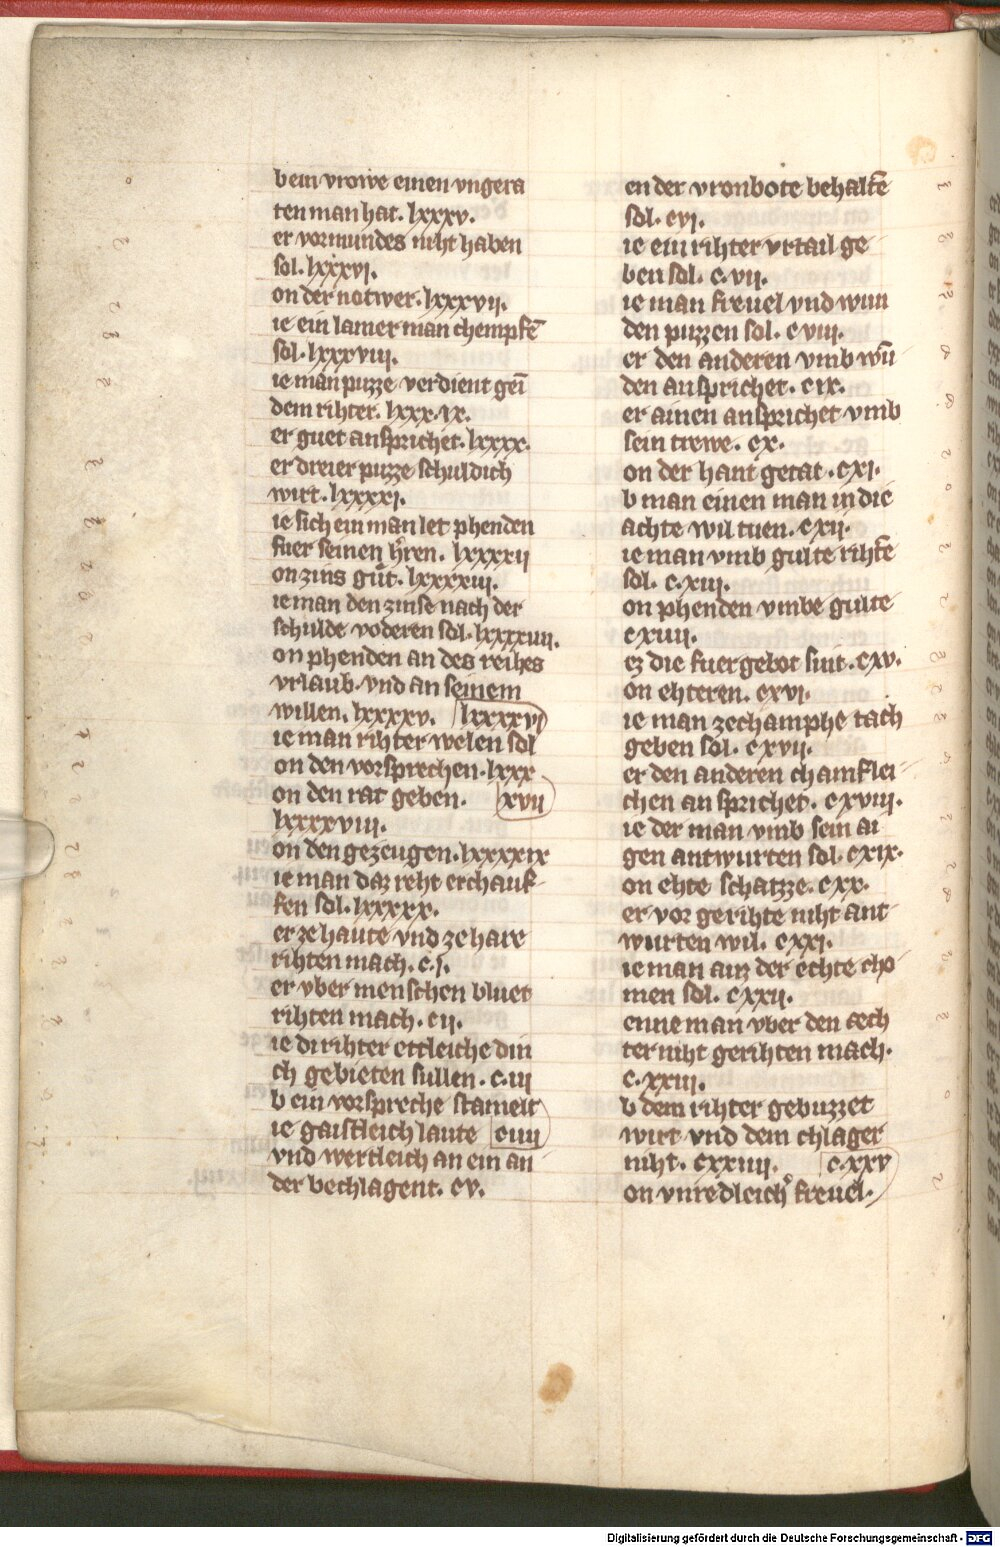 b ein vrowe einen vngera
ten man hat. lxxxv.
er vormundes niht haben
sol. lxxxvi.
on der notwer. lxxxvii.
ie ein lamer man chempfē
sol. lxxxviii.
ie man puzze verdient geī
dem rihter. lxxx.ix.
er guet ansprichet. lxxxx.
er dreier puzze schuldich
wirt. lxxxxi.
ie sich ein man let phenden
fuer seinen h̄ren. lxxxxii
on zins gůt. lxxxxiii.
ie man den zinse nach der
schulde voderen sol. lxxxxiiii.
on phenden an des reihes
vrlaub. vnd an seinem
willen. lxxxxv. lxxxxvi
ie man rihter welen sol
on den vorsprechen. lxxx
on den rat geben. xvii
lxxxxviii.
on den gezeugen. lxxxxix
ie man daz reht erchauf
fen sol. lxxxxx.
er ze haute vnd ze hare
rihten mach. c.i.
er vber menschen bluet
rihten mach. cii.
ie di rihter ettleiche din
ch gebieten sullen. c.iii
b ein vorspreche stamelt
ie gaistleich laute ciiii
vnd wertleich an ein an
der bechlagent. cv.
en der vronbote behaltē
sol. cvi.
ie ein rihter vrtail ge
ben sol. c.vii.
ie man freuel vnd wun
den puzzen sol. cviii.
er den anderen vmb wū
den ansprichet. cix.
er ainen ansprichet vmb
sein trewe. cx.
on der hant getat. cxi.
b man einen man in die
achte wil tuen. cxii.
ie man vmb gulte rihtē
sol. c.xiii.
on phenden vmbe gulte
cxiiii.
ez die fuergebot sint. cxv.
on ehteren. cxvi.
ie man ze champhe tach
geben sol. cxvii.
er den anderen chamflei
chen ansprichet. cxviii.
ie der man vmb sein ai
gen antwurten sol. cxix.
on ehte schatzze. cxx.
er vor gerihte niht ant
wurten wil. cxxi.
ie man auz der echte cho
men sol. cxxii.
enne man vber den aech
ter niht gerihten mach.
c.xxiii.
b dem rihter gebuzzet
wirt vnd dem chlager
niht. cxxiiii. c.xxv
on vnredleich̊ freuel.
Digitalisierung gefördert durch die Deutsche Forschungsgemeinschaft - DFG